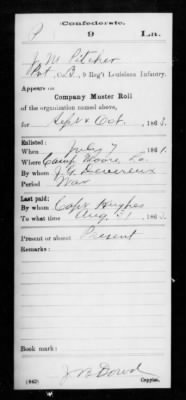 Confederate.
P 9 La.
J. M. Pitcher
Pvt, Co. B, 9 Reg't Louisiana Infantry.
Appears on
Company Muster Roll
of the organization named above,
for Sept & Oct, 186
Enlisted:
When July 7, 1861.
Where Camp Moore La.
By whom J. G. Devereux
Period War
Last paid:
By whom Capt Hughes
To what time Aug 31, 186
Present or absent Present
Remarks:
Book mark:
J B Dowd
(642) Copyist.